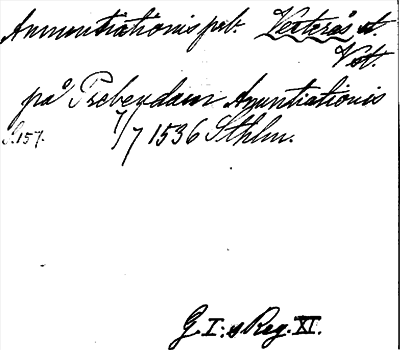 Annuntiationis preb. Vesterås st.
Vstl.
på Prebendam Anuntiationis
S. 157. 7/7 1536 Sthlm.
G. I:s Reg. XI.